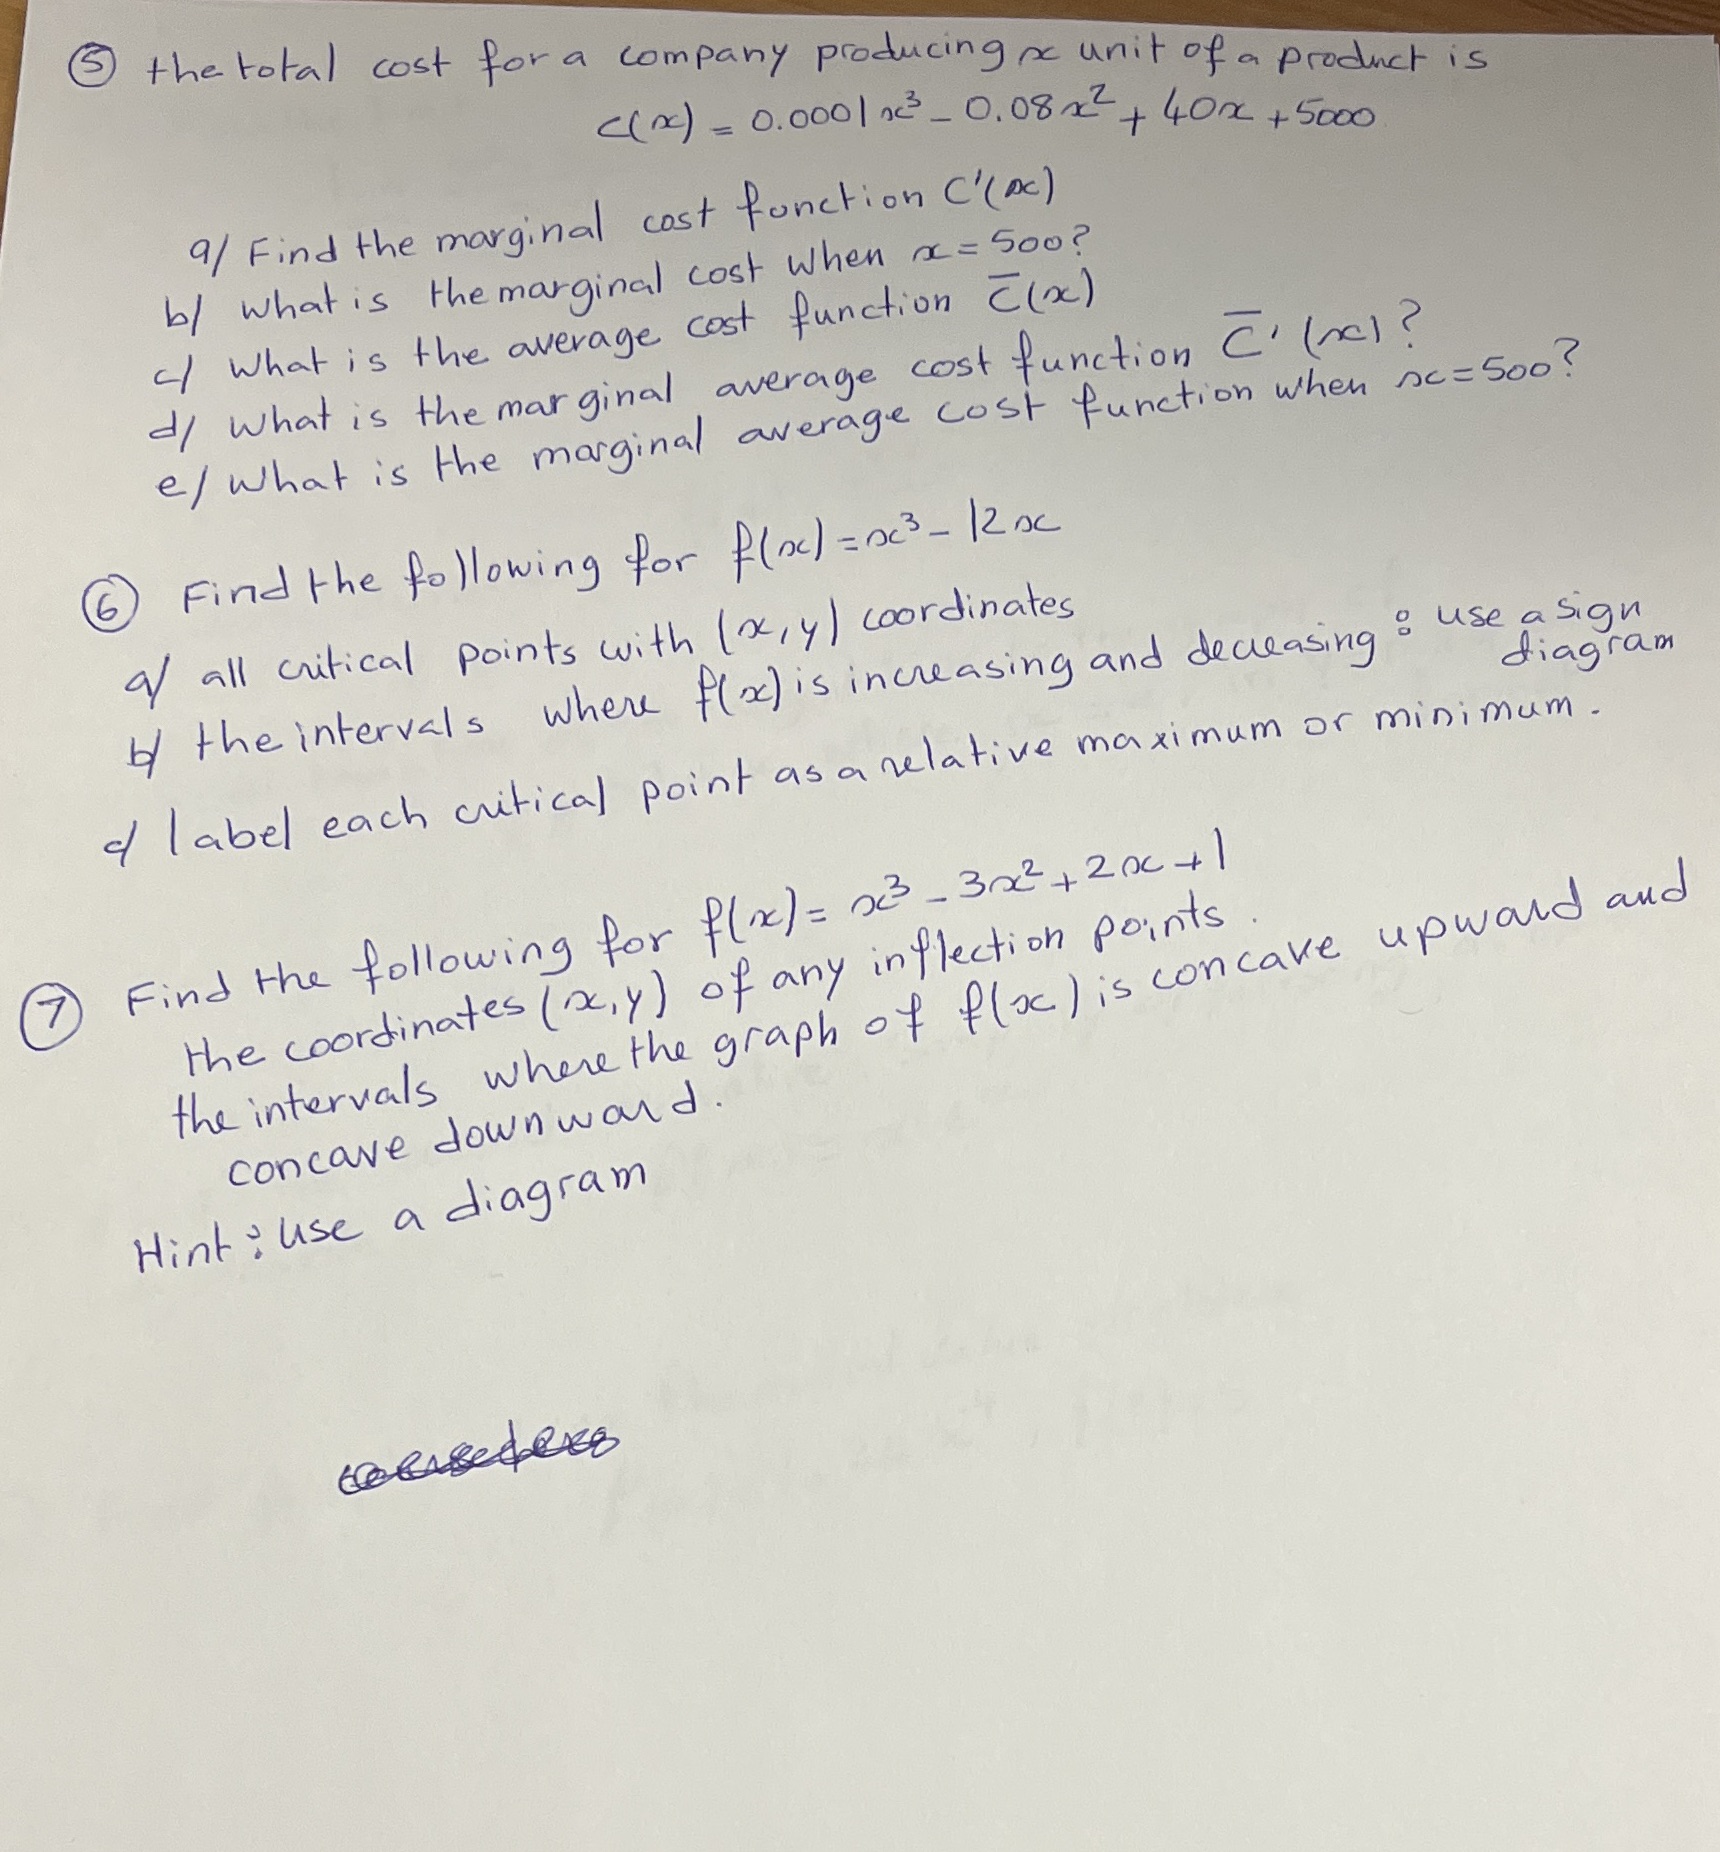 ⑤ the total cost for a company producing x unit of a product is
C(x) = 0.0001x³ - 0.08x² + 40x + 5000
a/ Find the marginal cost function C'(x)
b/ what is the marginal cost when x = 500?
c/ what is the average cost function C̅(x)
d/ what is the marginal average cost function C̅'(x)?
e/ what is the marginal average cost function when x = 500?
⑥ Find the following for f(x) = x³ - 12x
a/ all critical points with (x,y) coordinates
b/ the intervals where f(x) is increasing and decreasing : use a sign
diagram
c/ label each critical point as a relative maximum or minimum.
⑦ Find the following for f(x) = x³ - 3x² + 2x + 1
the coordinates (x,y) of any inflection points.
the intervals where the graph of f(x) is concave upward and
concave downward.
Hint : use a diagram